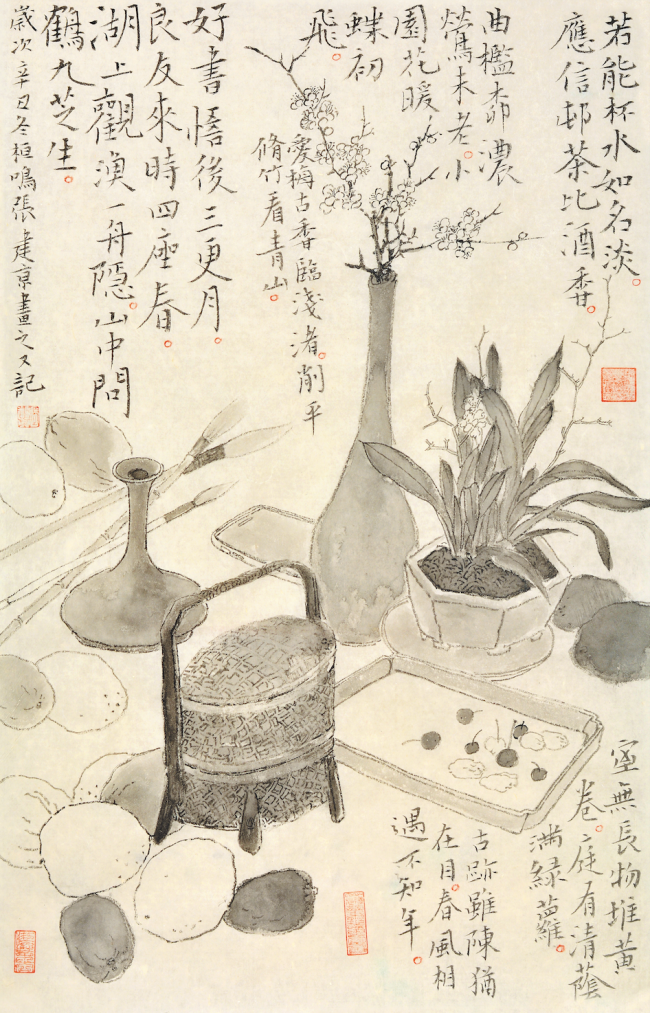 若能杯水如名淡
應信邨茶比酒香
曲檻春濃
鶯未老小
園花暖
蝶初
飛
愛梅古香臨淺渚削平
脩竹看青山
好書悟後三更月
良友來時四座春
湖上觀漁一舟隱山中問
鶴九芝生
歲次辛丑冬桓鳴張建京畫之又記
室無長物堆黃
卷庭有清蔭
滿綠蘿
古跡雖陳猶
在目春風相
遇不知年